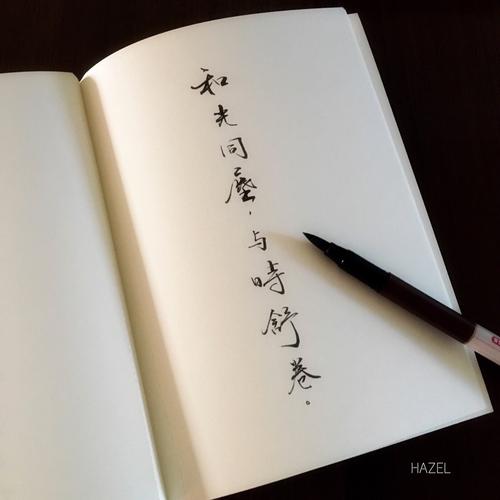 和光同塵，与時舒卷。
HAZEL